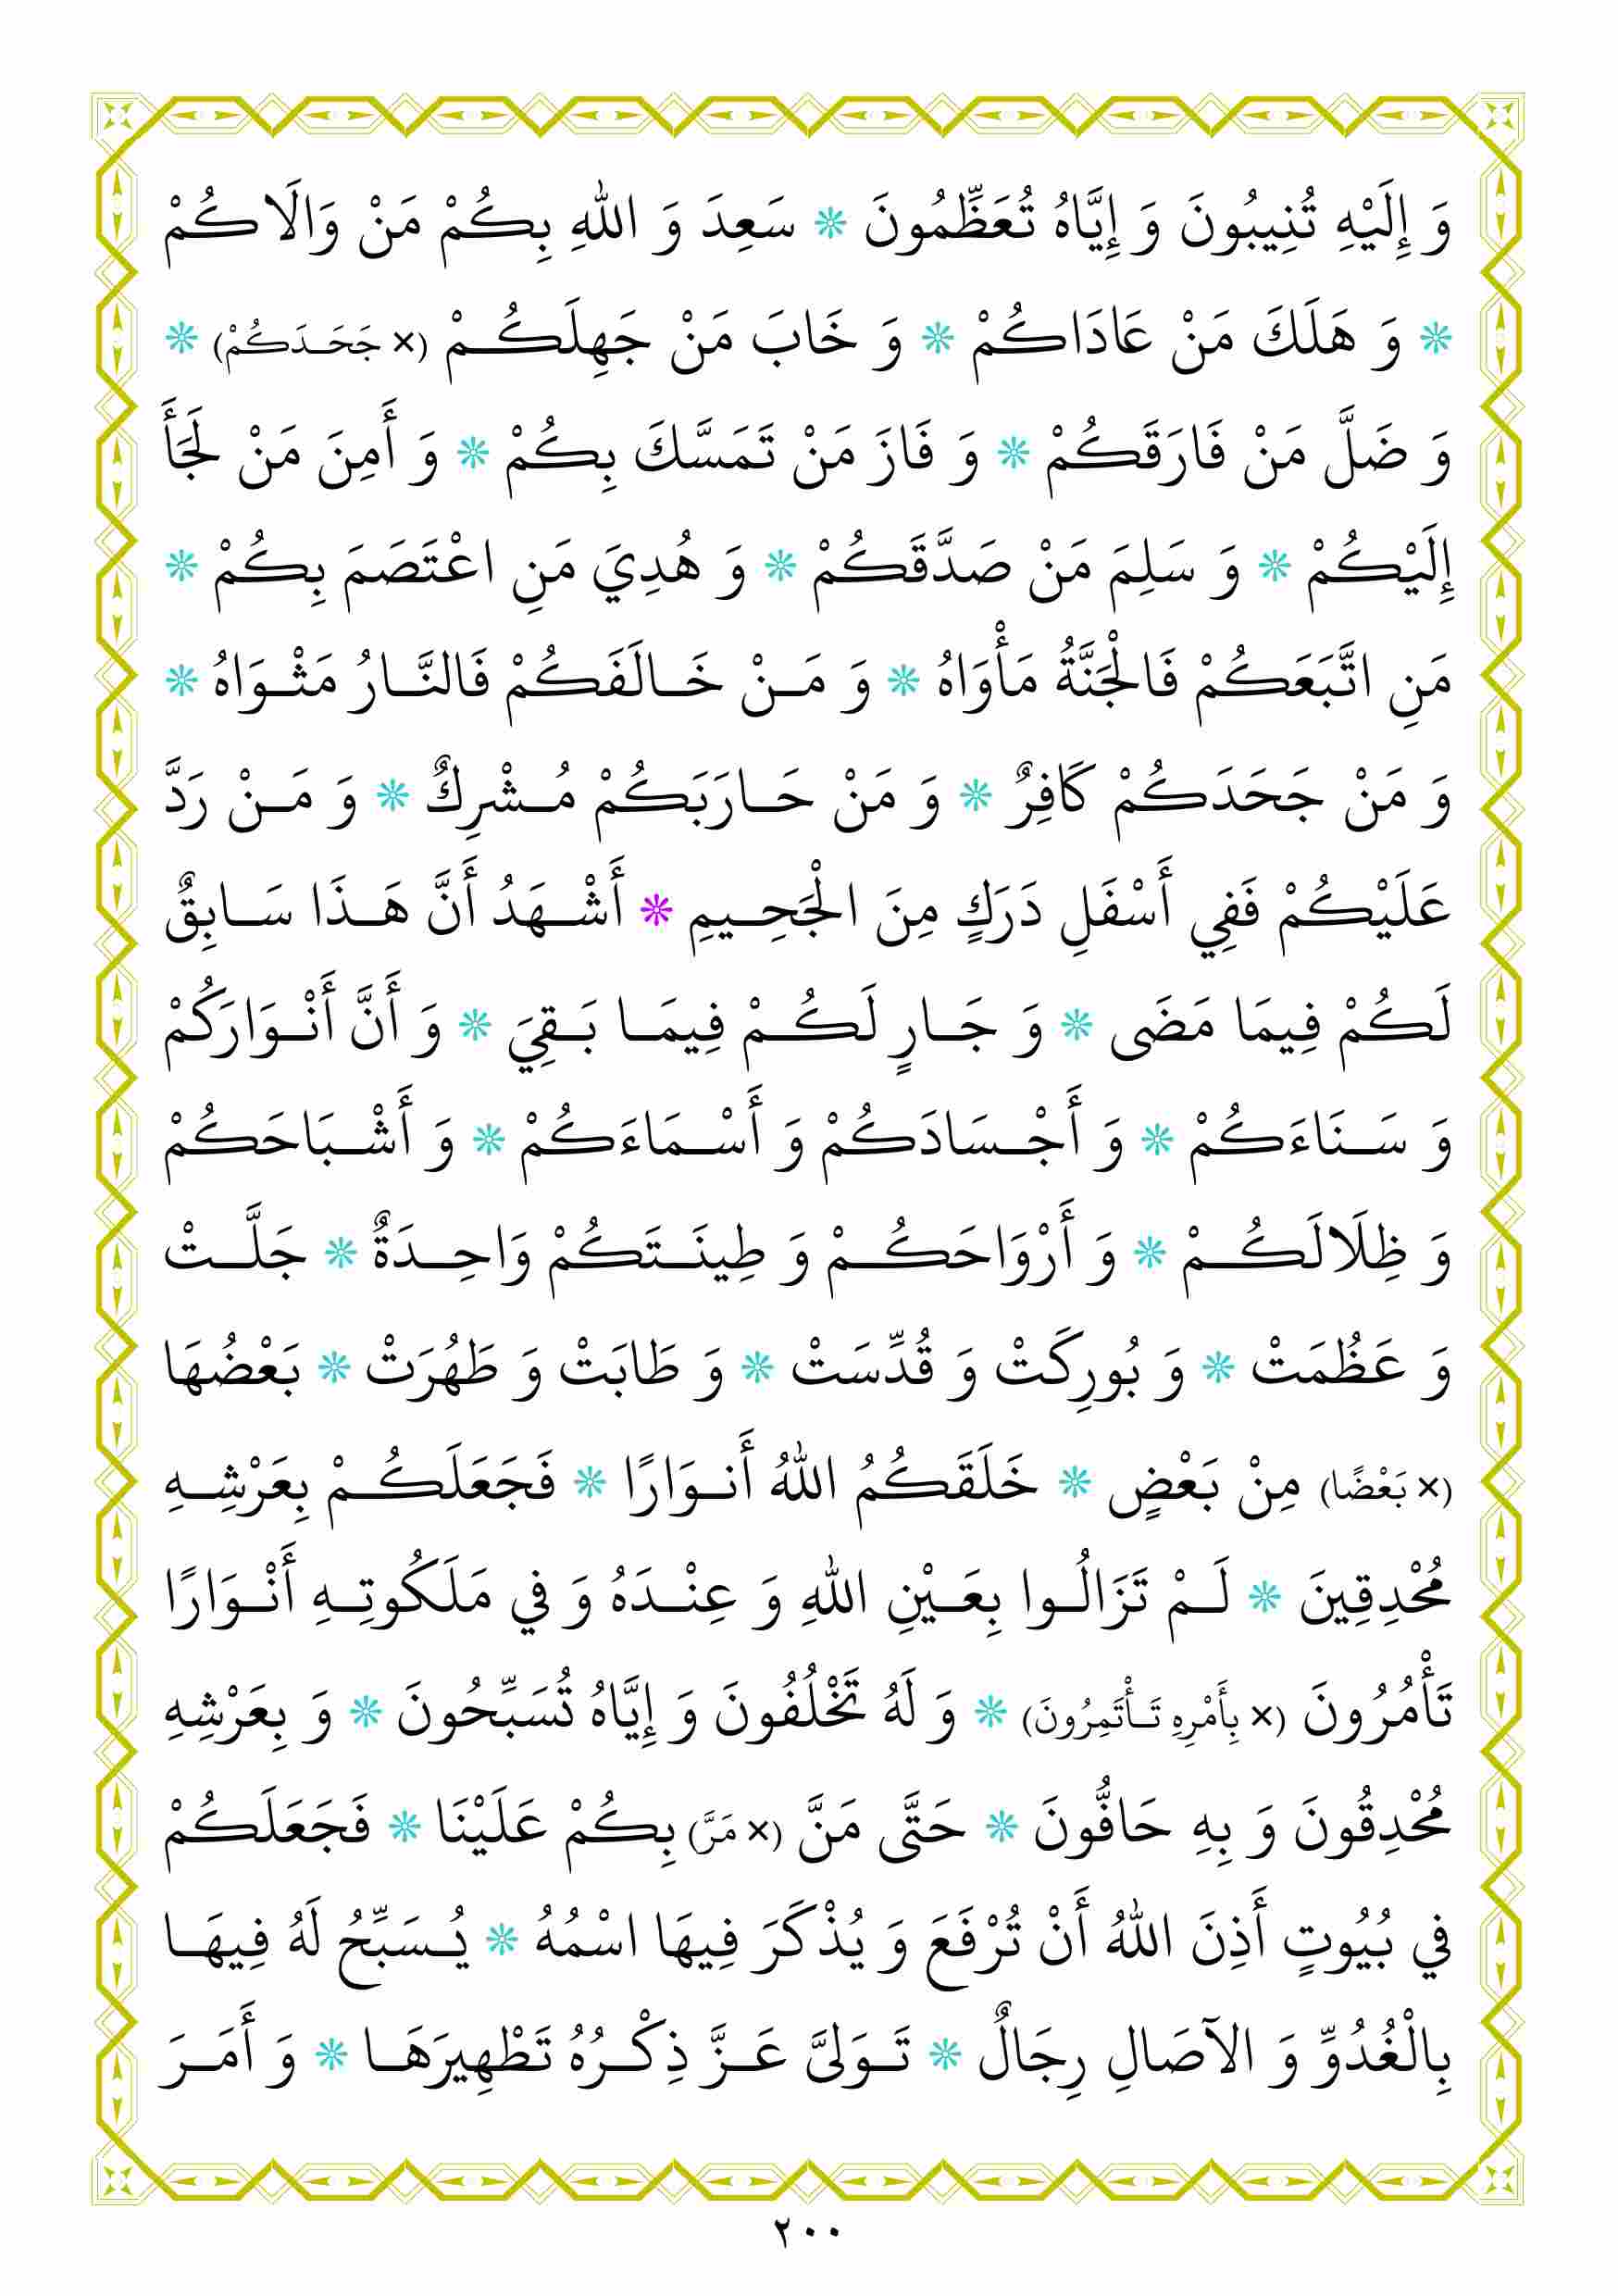 وَ إِلَيْهِ تُنِيبُونَ وَ إِيَّاهُ تُعَظِّمُونَ * سَعِدَ وَ اللهِ بِكُمْ مَنْ وَالَاكُمْ
* وَ هَلَكَ مَنْ عَادَاكُمْ * وَ خَابَ مَنْ جَهِلَكُمْ (× جَحَدَكُمْ) *
وَ ضَلَّ مَنْ فَارَقَكُمْ * وَ فَازَ مَنْ تَمَسَّكَ بِكُمْ * وَ أَمِنَ مَنْ لَجَأَ
إِلَيْكُمْ * وَ سَلِمَ مَنْ صَدَّقَكُمْ * وَ هُدِيَ مَنِ اعْتَصَمَ بِكُمْ *
مَنِ اتَّبَعَكُمْ فَالْجَنَّةُ مَأْوَاهُ * وَ مَنْ خَالَفَكُمْ فَالنَّارُ مَثْوَاهُ *
وَ مَنْ جَحَدَكُمْ كَافِرٌ * وَ مَنْ حَارَبَكُمْ مُشْرِكٌ * وَ مَنْ رَدَّ
عَلَيْكُمْ فَفِي أَسْفَلِ دَرَكٍ مِنَ الْجَحِيمِ * أَشْهَدُ أَنَّ هَذَا سَابِقٌ
لَكُمْ فِيمَا مَضَى * وَ جَارٍ لَكُمْ فِيمَا بَقِيَ * وَ أَنَّ أَنْوَارَكُمْ
وَ سَنَاءَكُمْ * وَ أَجْسَادَكُمْ وَ أَسْمَاءَكُمْ * وَ أَشْبَاحَكُمْ
وَ ظِلَالَكُمْ * وَ أَرْوَاحَكُمْ وَ طِينَتَكُمْ وَاحِدَةٌ * جَلَّتْ
وَ عَظُمَتْ * وَ بُورِكَتْ وَ قُدِّسَتْ * وَ طَابَتْ وَ طَهُرَتْ * بَعْضُهَا
(× بَعْضًا) مِنْ بَعْضٍ * خَلَقَكُمُ اللهُ أَنوَارًا * فَجَعَلَكُمْ بِعَرْشِهِ
مُحْدِقِينَ * لَمْ تَزَالُوا بِعَيْنِ اللهِ وَ عِنْدَهُ وَ فِي مَلَكُوتِهِ أَنْوَارًا
تَأْمُرُونَ (× بِأَمْرِهِ تَأْتَمِرُونَ) * وَ لَهُ تَخْلُفُونَ وَ إِيَّاهُ تُسَبِّحُونَ * وَ بِعَرْشِهِ
مُحْدِقُونَ وَ بِهِ حَافُّونَ * حَتَّى مَنَّ (× مَرَّ) بِكُمْ عَلَيْنَا * فَجَعَلَكُمْ
فِي بُيُوتٍ أَذِنَ اللهُ أَنْ تُرْفَعَ وَ يُذْكَرَ فِيهَا اسْمُهُ * يُسَبِّحُ لَهُ فِيهَا
بِالْغُدُوِّ وَ الآصَالِ رِجَالٌ * تَوَلىَّ عَزَّ ذِكْرُهُ تَطْهِيرَهَا * وَ أَمَرَ
٢٠٠